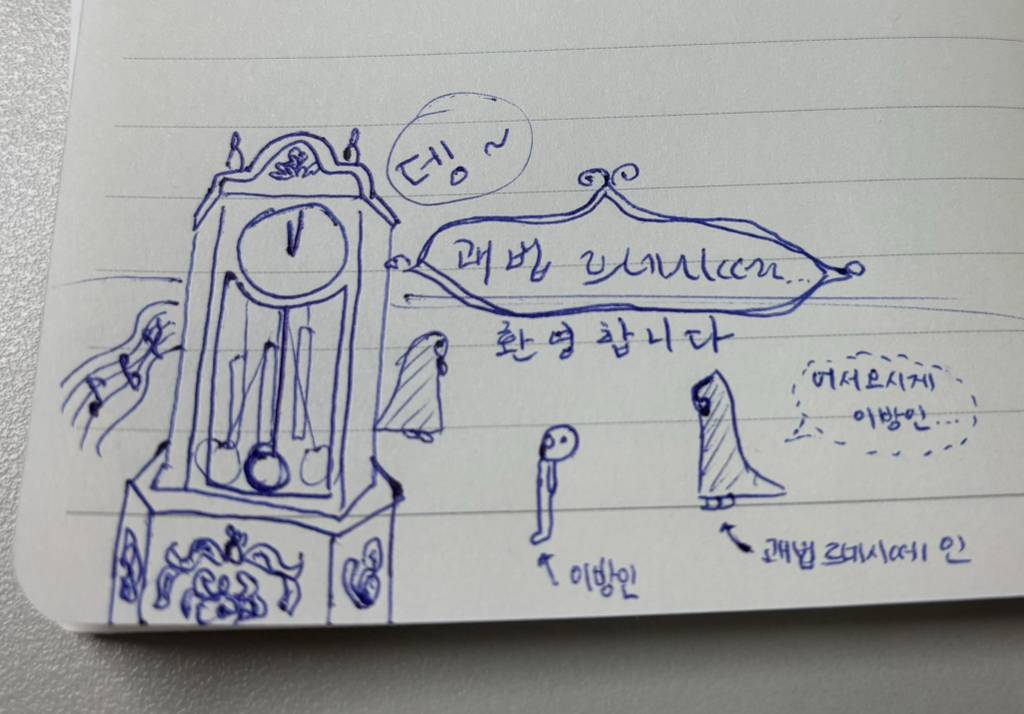 뎅~
괘법 르네시떼...
환영합니다
어서오시게
이방인...
이방인
괘법 르네시떼 인